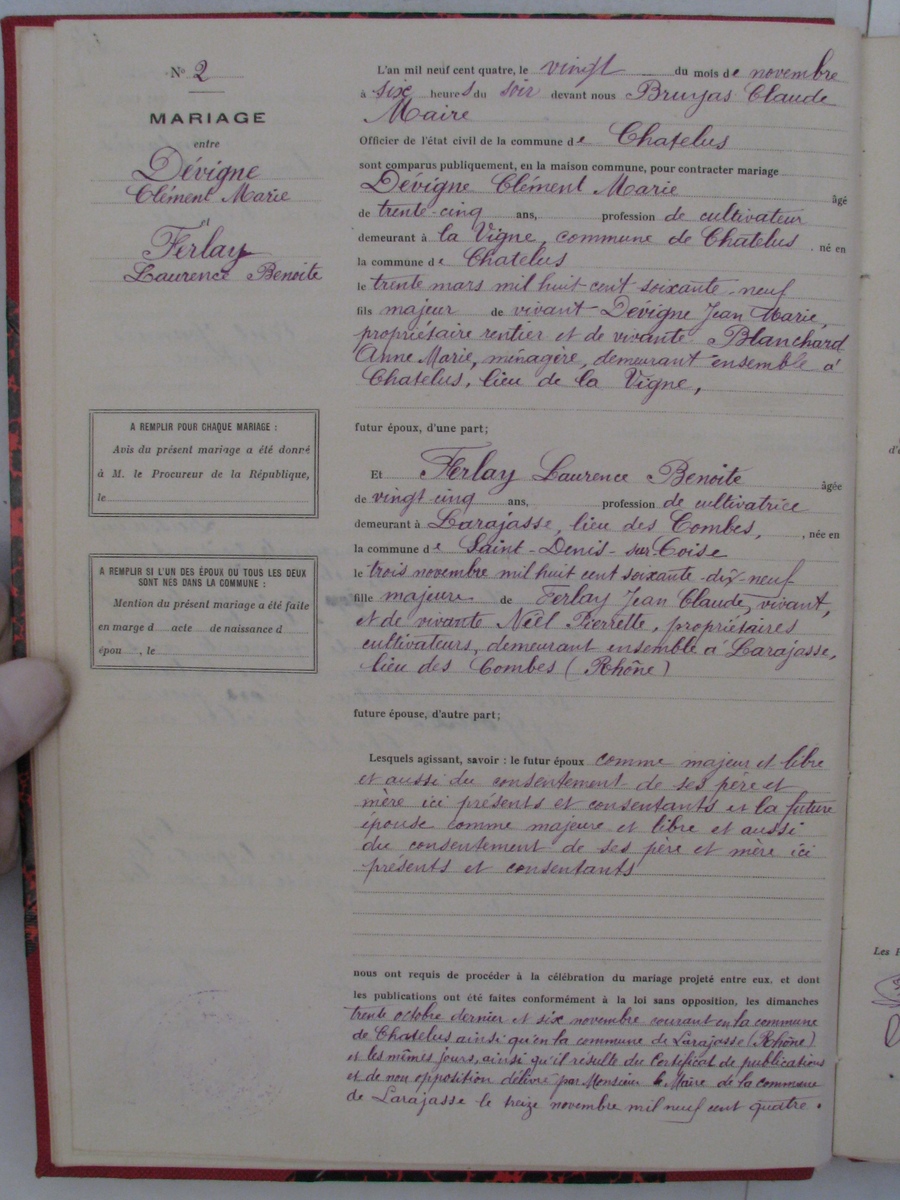 Nº 2
MARIAGE
entre
Dévigne
Clément Marie
et
Ferlay
Laurence Benoite
A REMPLIR POUR CHAQUE MARIAGE :
Avis du présent mariage a été donné
à M. le Procureur de la République,
le
A REMPLIR SI L'UN DES ÉPOUX OU TOUS LES DEUX
SONT NÉS DANS LA COMMUNE :
Mention du présent mariage a été faite
en marge d acte de naissance d
épou , le
L'an mil neuf cent quatre, le vingt du mois de novembre
à six heures du soir devant nous Bruyas Claude
Maire
Officier de l'état civil de la commune de Chatelus
sont comparus publiquement, en la maison commune, pour contracter mariage
Dévigne Clément Marie âgé
de trente-cinq ans, profession de cultivateur
demeurant à la Vigne, commune de Chatelus , né en
la commune de Chatelus
le trente mars mil huit cent soixante-neuf
fils majeur de vivant Dévigne Jean Marie,
propriétaire rentier et de vivante Blanchard
Anne Marie, ménagère, demeurant ensemble à
Chatelus, lieu de la Vigne,
futur époux, d'une part;
Et Ferlay Laurence Benoite âgée
de vingt cinq ans, profession de cultivatrice
demeurant à Larajasse, lieu des Combes, , née en
la commune de Saint-Denis-sur-Coise
le trois novembre mil huit cent soixante-dix-neuf
fille majeure de Ferlay Jean Claude, vivant,
et de vivante Néel Pierrette, propriétaires
cultivateurs, demeurant ensemble à Larajasse,
lieu des Combes (Rhône)
future épouse, d'autre part;
Lesquels agissant, savoir : le futur époux comme majeur et libre
et aussi du consentement de ses père et
mère ici présents et consentants et la future
épouse comme majeure et libre et aussi
du consentement de ses père et mère ici
présents et consentants
nous ont requis de procéder à la célébration du mariage projeté entre eux, et dont
les publications ont été faites conformément à la loi sans opposition, les dimanches
trente octobre dernier et six novembre courant en la commune
de Chatelus ainsi qu'en la commune de Larajasse (Rhône)
et les mêmes jours, ainsi qu'il résulte du Certificat de publications
et de non opposition délivré par Monsieur le Maire de la commune
de Larajasse le treize novembre mil neuf cent quatre.
d'
Les